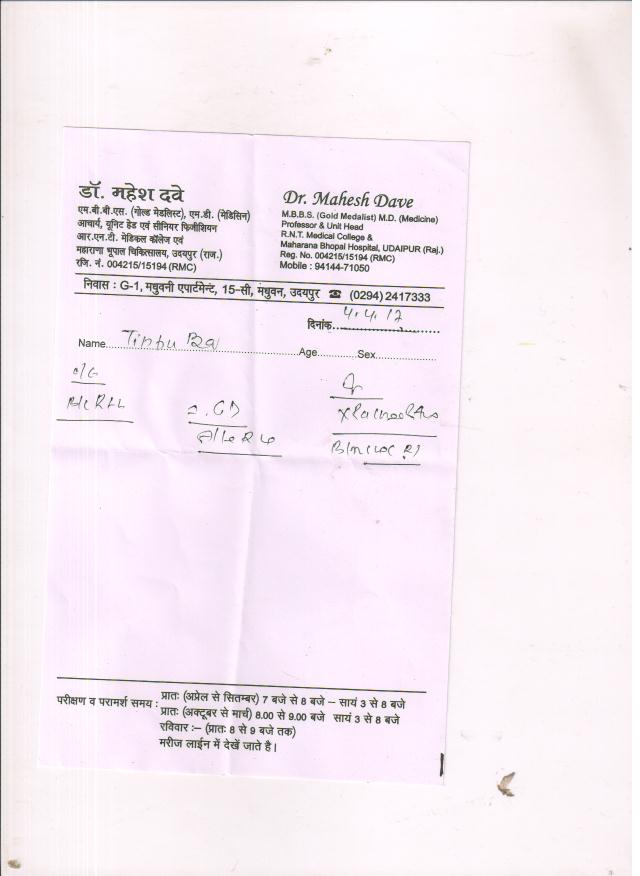 डॉ. महेश दवे
एम.बी.बी.एस. (गोल्ड मेडलिस्ट), एम.डी. (मेडिसिन)
आचार्य, यूनिट हेड एवं सीनियर फिजीशियन
आर.एन.टी. मेडिकल कॉलेज एवं
महाराणा भूपाल चिकित्सालय, उदयपुर (राज.)
रजि. नं. 004215/15194 (RMC)
Dr. Mahesh Dave
M.B.B.S. (Gold Medalist) M.D. (Medicine)
Professor & Unit Head
R.N.T. Medical College &
Maharana Bhopal Hospital, UDAIPUR (Raj.)
Reg. No. 004215/15194 (RMC)
Mobile : 94144-71050
निवास : G-1, मधुवनी एपार्टमेन्ट, 15-सी, मधुवन, उदयपुर ☎ (0294) 2417333
दिनांक 4.4.12
Name Age Sex
परीक्षण व परामर्श समय : प्रातः (अप्रेल से सितम्बर) 7 बजे से 8 बजे – सायं 3 से 8 बजे
प्रातः (अक्टूबर से मार्च) 8.00 से 9.00 बजे सायं 3 से 8 बजे
रविवार :– (प्रातः 8 से 9 बजे तक)
मरीज लाईन में देखें जाते है।